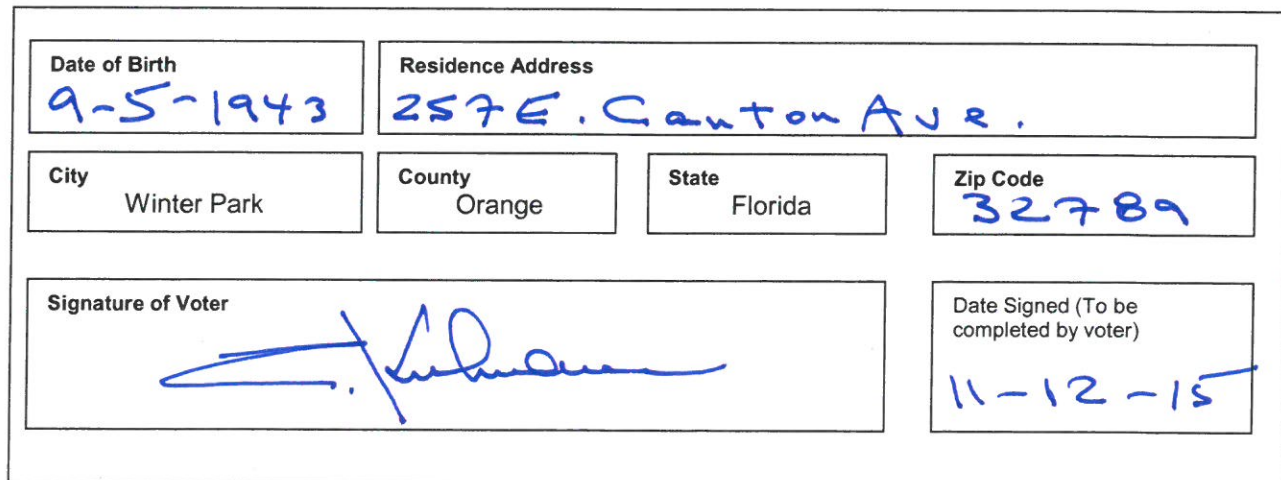 Date of Birth
9-5-1943
Residence Address
257 E. Canton Ave.
City
Winter Park
County
Orange
State
Florida
Zip Code
32789
Signature of Voter
Date Signed (To be
completed by voter)
11-12-15